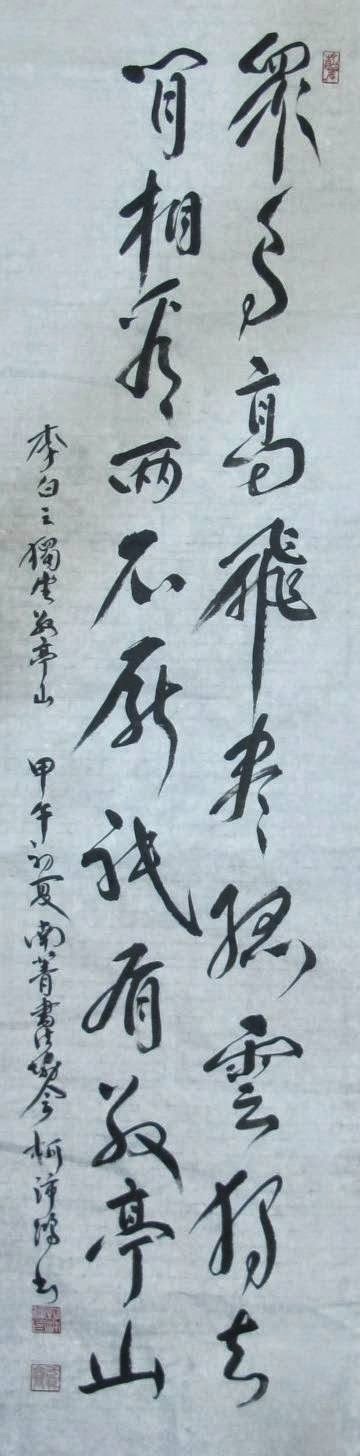 眾鳥高飛盡孤雲獨去
閒相看兩不厭祇有敬亭山
李白之獨坐敬亭山 甲午初夏南菁書法協會 柯 書